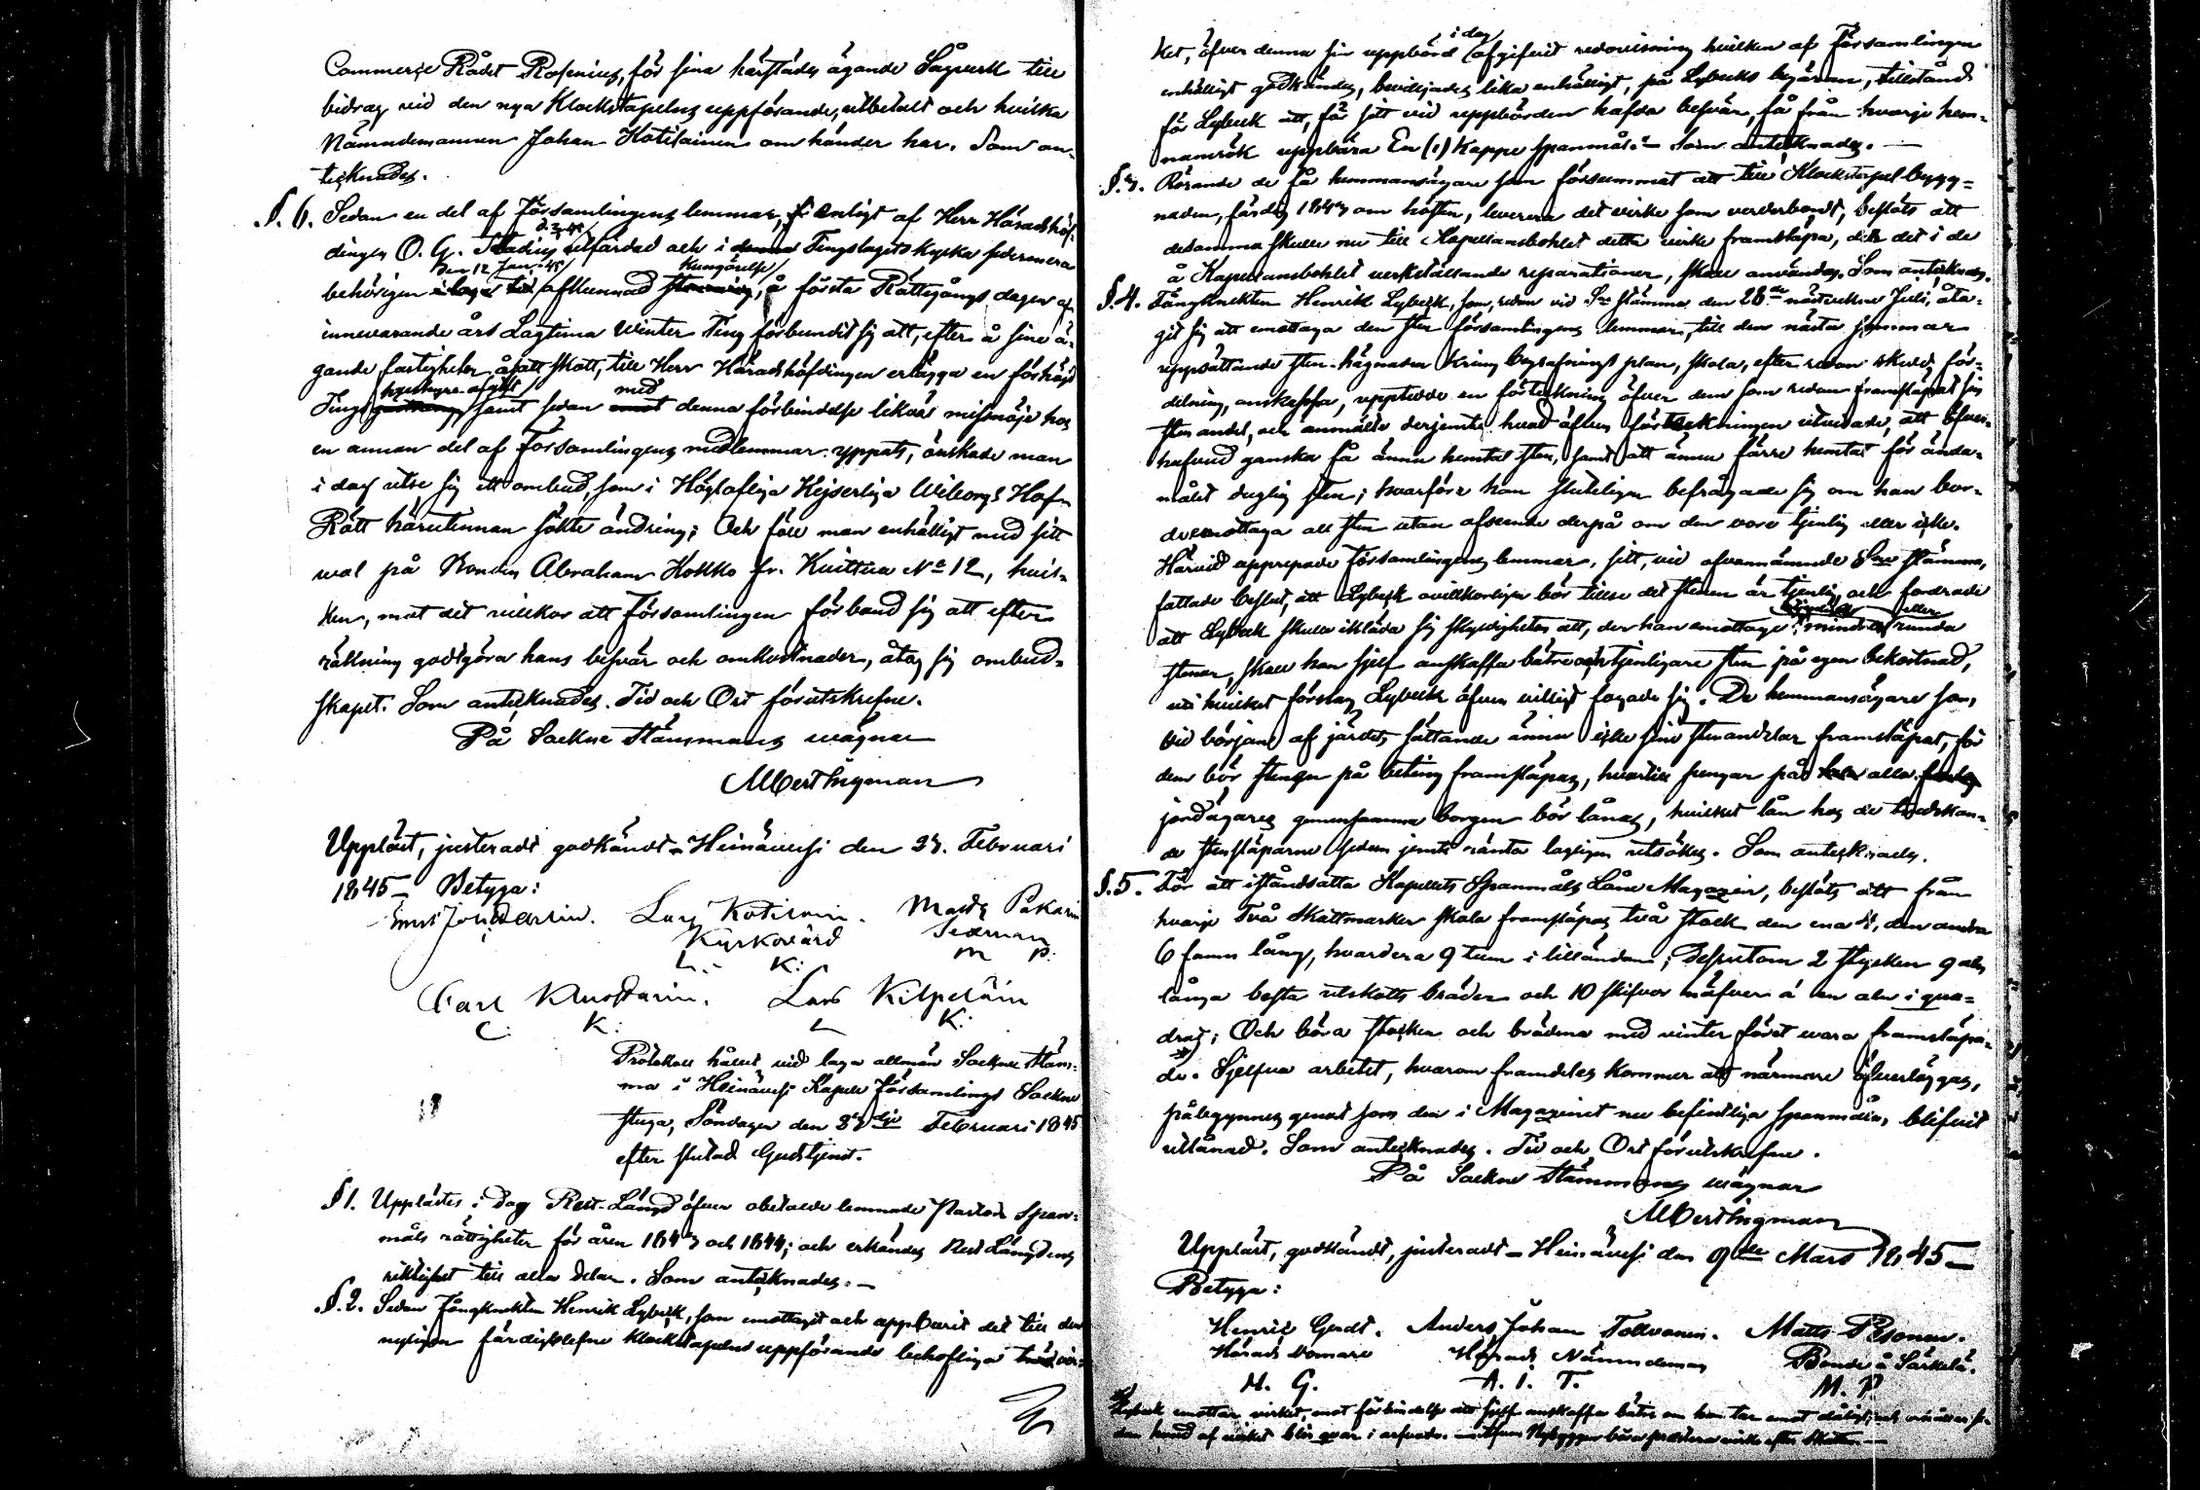 Commerce Rådet Rosenius, för sina härstädes ägande Sågverk till
bidrag vid den nya Klockstapelns uppförande, utbetalt och hvilka
Nämndemannen Johan Kotilainen om händer har. Som an-
tecknades.
§. 6. Sedan en del af Församlingens lemmar, enligt af Herr Häradshöf-
dingen O. G. utfärdad och i Tingslagets kyrka sedermera
den 12 Jan. 45 Kungörelse
behörigen afkunnad, å första Rättegångs dagen af
innevarande års Lagtima Winter Ting förbundit sig att, efter å sine ä-
gande fastigheter åsatt skatt, till Herr Häradshöfdingen erlägga en förhöjd
med
Tings samt sedan denna förbindelse likväl missnöje hos
en annan del af Församlingens medlemmar yppats, önskade man
i dag utse sig ett ombud, som i Höglofliga Kejserliga Wiborgs Hof-
Rätt härutinnan sökte ändring; Och föll man enhälligt med sitt
wal på Bonden Abraham Kokko fr. Kuittua No 12, hvil-
ken, mot det villkor att Församlingen förband sig att efter
räkning godtgöra hans besvär och omkostnader, åtog sig ombud-
skapet. Som antecknades. Tid och Ort förutskrefne.
På Sockne Stämmans wägnar
Alb Ert Ingman
Uppläst, justeradt godkändt - Heinävesi den 23. Februari
1845 - Betyga:
Lars Kotilain. Matts Pakarin
Kyrkovärd Sexman
L. K: M P.
Carl Lars Kilpeläin
C: K: L K:
Protokoll hållet vid laga allmän Sockne Stäm-
ma i Heinävesi Kapell Församlings Sockne
stuga, Söndagen den 23dje Februari 1845
efter slutad Gudstjenst.
§ 1. Upplästes i dag Rest-Längd öfver obetalde lemnade Pastors Span-
måls rättigheter för åren 1843 och 1844; och erkändes Rest Längdens
riktighet till alla delar. Som antecknades. —
§. 2. Sedan Fångknekten Henrik Lybeck, som emottagit och uppburit det till den
nyligen färdigblefne klockstapelns uppförande behöfliga
i dag
ket, öfver denna sin uppbörd afgifvit redovisning hvilken af Församlingen
enhälligt godkändes, beviljades lika enhälligt, på Lybecks begäran, tillstånd
för Lybeck att, för sitt vid uppbörden hafda besvär, få från hvarje hem-
mansrök uppbära En (1) Kappe spanmål. Som antecknades. —
§. 3. Rörande de få hemmansägare som försummat att till Klockstapel bygg-
naden, färdig 1843 om hösten, leverera det virke som vederbordt, beslöts att
desamma skulle nu till Kapellansbohlet detta virke framsläpa, der det i de
å Kapellansbohlet verkställande reparationer, skall användas. Som antecknades.
§. 4. Fångknekten Henrik Lybeck, som, redan vid Sne stämma den 28de näst Juli, åta-
git sig att emottaga den sten församlingens lemmar, till den nästa sommar
uppsättande sten-hägnaden kring begrafnings plan, skola, efter redan skedd för-
delning, anskaffa, uppteckn en förteckning öfver dem som redan framsläpat sin
sten andel, och anmälte derjemte hvad äfven förteckningen utvisade, att öfver-
hufvud ganska få ännu hemtat sten, samt att ännu färre hemtat för ända-
målet duglig sten; hvarföre han sluteligen befrågade sig om han bor-
de emottaga all sten utan afseende derpå om den vore tjenlig eller icke.
Härvid upprepade Församlingens lemmar, sitt, vid ofvannämnde Sne stämma,
fattade beslut, att Lybeck ovillkorligen bör tillse det stenen är tjenlig och fordrade
att Lybeck skulle ikläda sig skyldigheten att, der han emottager mindre eller runda
stenar, skall han sjelf anskaffa bättre och tjenligare sten på egen bekostnad,
uti hvilket förslag Lybeck äfven villigt fogade sig. De hemmansägare som,
vid början af gärdets sättande ännu icke sine stenandelar framsläpat, för
dem bör stengen på beting framsläpas, hvartill pengar på alla
jordägares gemensamma borgen bör lånas, hvilket lån hos de tredskan-
de stensläparne sedan jemte ränta lagligen utsökes. Som antecknades.
§. 5. För att iståndsätta Kapellets Spanmåls Låne Magazin, beslöts att från
hvarje Två Skattmarker skola framsläpas två stock den ena 4, den andra
6 famn lång, hvardera 9 tum i lilländan; dessutom 2 stycken 9 aln
långa besta utskotts bräder och 10 skifvor näfver á en aln i qua-
drat; Och böra stocken och bräderna med vinter föret wara framsläpa-
de. Sjelfva arbetet, hvarom framdeles kommer att närmare öfverläggas,
påbegynnes genast som den i Magazinet nu befintliga spanmålen, blifvit
utlånad. Som antecknades. Tid och Ort förutskrefne.
På Sockne Stämmans wägnar
Alb Ert Ingman
Uppläst, godkändt, justeradt - Heinävesi den 9de Mars 1845 —
Betyga:
Henric Gerdt. Anders Johan Tolvanen. Matts Pesonen.
Härads Domare Härads Nämndeman Bonde å Särkelä.
H. G. A. I. T. M. P.
Lybeck emottar virket, mot förbindelse att sjelf anskaffa bättre om han tar emot dåligt